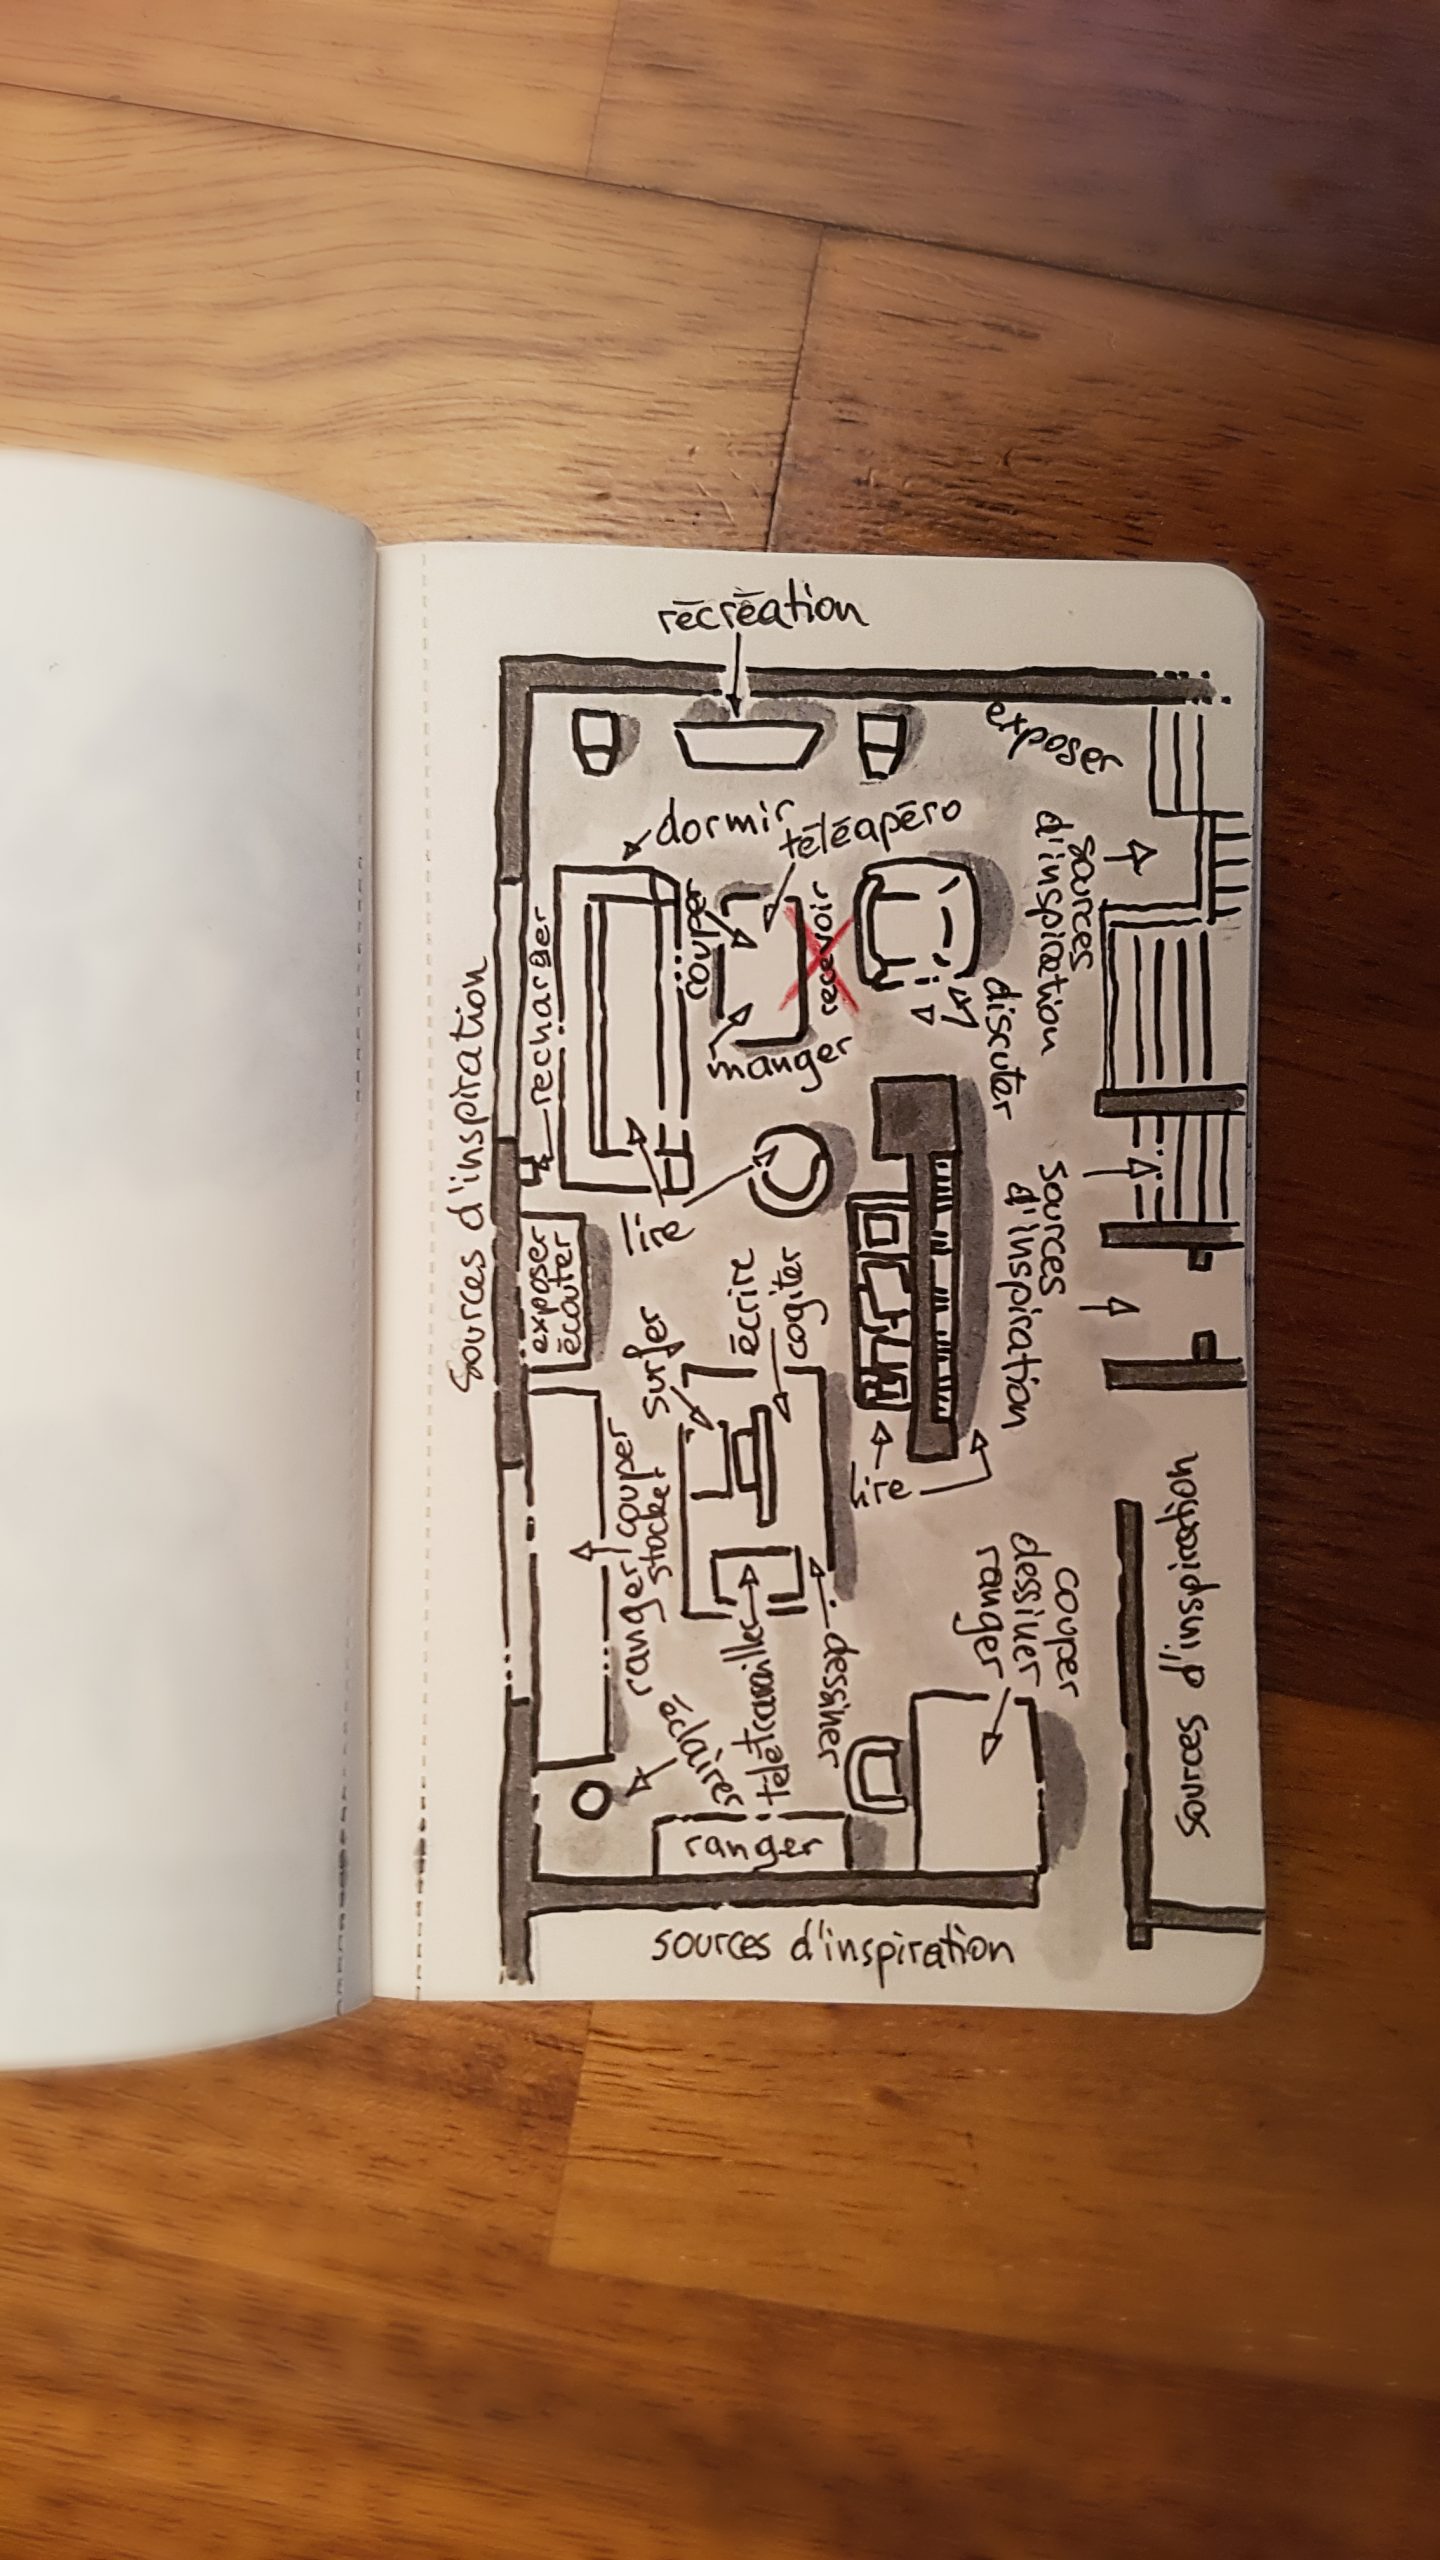 récréation
exposer
dormir
téléapéro
couper
recevoir
manger
discuter
sources
d'inspiration
recharger
Sources d'inspiration
lire
exposer
écouter
sources
d'inspiration
surfer
écrire
cogiter
lire
ranger/couper
stocker
télétravailler
dessiner
couper
dessiner
ranger
Sources d'inspiration
éclairer
ranger
sources d'inspiration